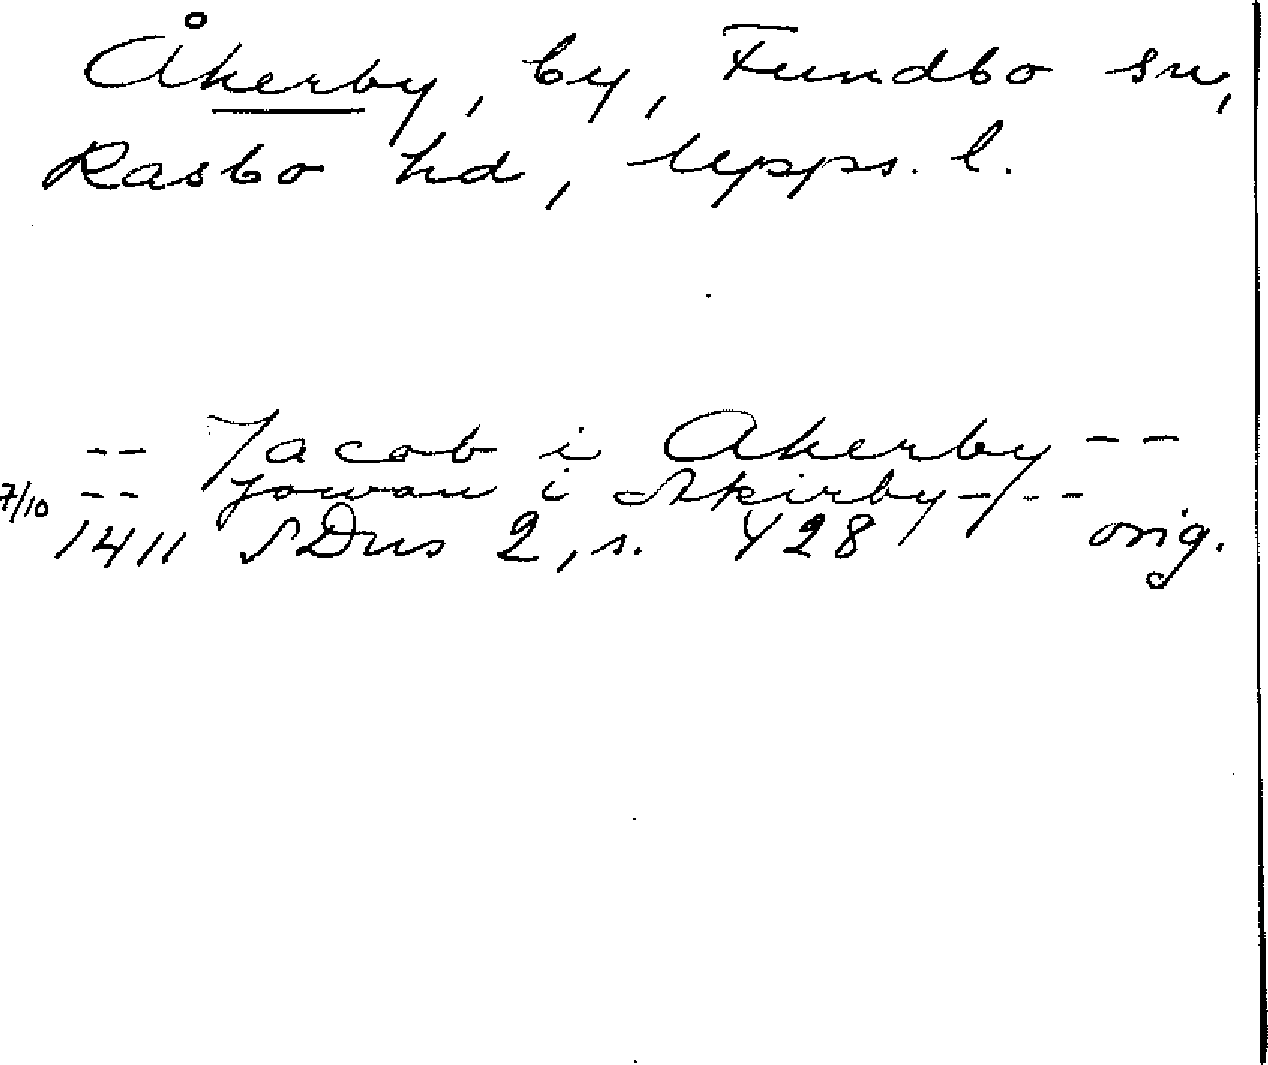 Åkerby, by, Funbo sn,
Rasbo hd, Upps. l.
-- Jacob i Akerby --
7/10 -- Jowan i Akirby -- --
1411 SDns 2, s. 428 orig.